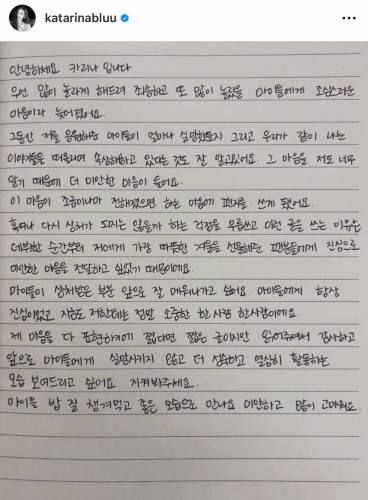 katarinabluu
안녕하세요 카리나 입니다
우선 많이 놀라게 해드려 죄송하고 또 많이 놀랐을 마이들에게 조심스러운
마음이라 늦어졌어요.
그동안 저를 응원해준 마이들이 얼마나 실망했을지 그리고 우리가 같이 나눈
이야기들을 떠올리며 속상해하고 있다는 것도 잘 알고있어요. 그 마음을 저도 너무
알기 때문에 더 미안한 마음이 들어요.
이 마음이 조금이나마 전해졌으면 하는 마음에 편지를 쓰게 됐어요.
혹여나 다시 상처가 되지는 않을까 하는 걱정을 무릅쓰고 이런 글을 쓰는 이유는
데뷔한 순간부터 저에게 가장 따뜻한 겨울을 선물해준 팬분들에게 진심으로
미안한 마음을 전달하고 싶었기 때문이에요.
마이들이 상처받은 부분 앞으로 잘 메워나가고 싶어요 마이들에게 항상
진심이었고 지금도 저한테는 정말 소중한 한 사람 한사람이에요.
제 마음을 다 표현하기에 짧다면 짧은 글이지만 읽어주셔서 감사하고
앞으로 마이들에게 실망시키지 않고 더 성숙하고 열심히 활동하는
모습 보여드리고 싶어요 지켜봐주세요.
마이들 밥 잘 챙겨먹고 좋은 모습으로 만나요 미안하고 많이 고마워요.